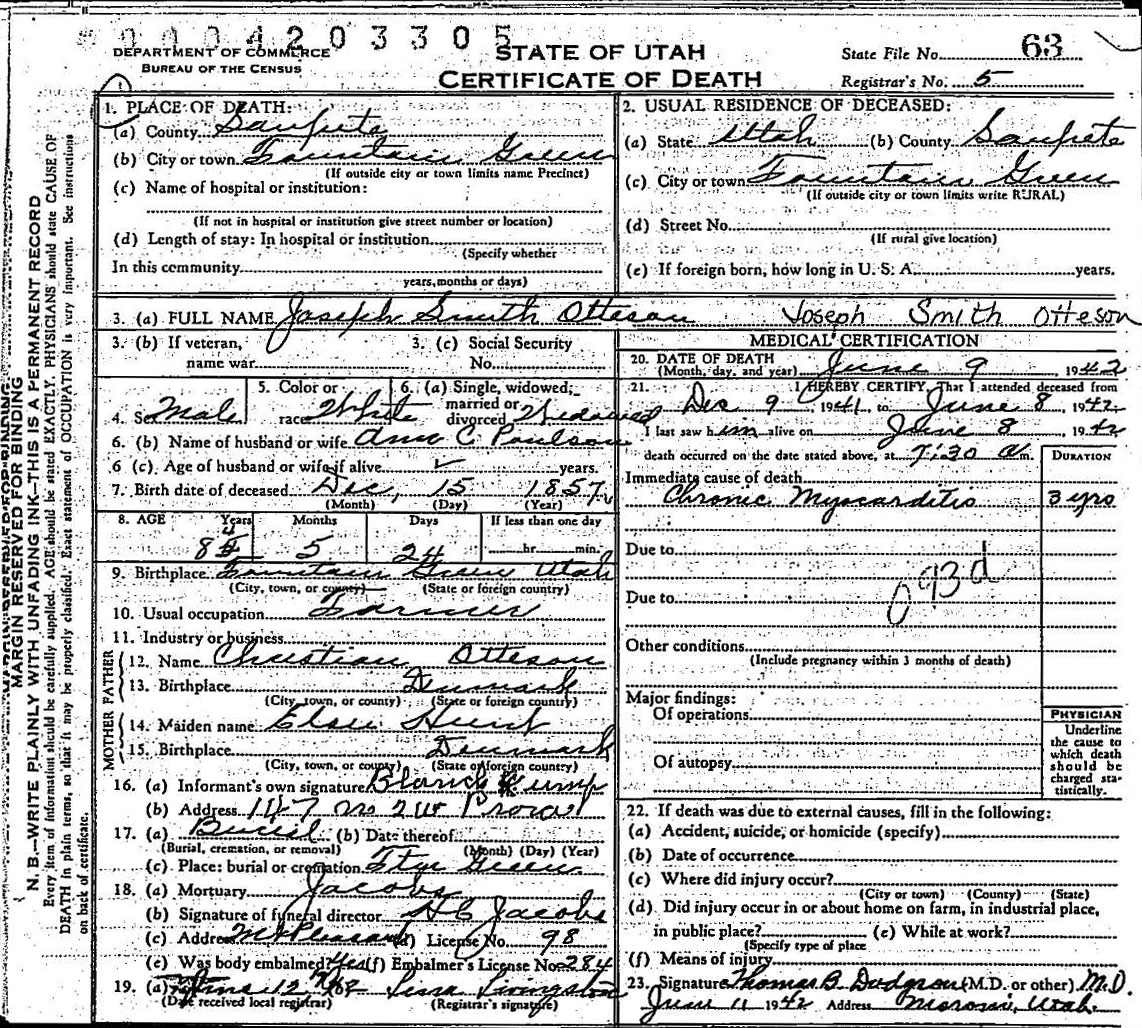 # 0004203305
DEPARTMENT OF COMMERCE
BUREAU OF THE CENSUS
STATE OF UTAH
CERTIFICATE OF DEATH
State File No. 63
Registrar's No. 5
MARGIN RESERVED FOR BINDING
N. B.—WRITE PLAINLY WITH UNFADING INK—THIS IS A PERMANENT RECORD
Every item of information should be carefully supplied. AGE should be stated EXACTLY. PHYSICIANS should state CAUSE OF
DEATH in plain terms, so that it may be properly classified. Exact statement of OCCUPATION is very important. See instructions
on back of certificate.
1. PLACE OF DEATH:
(a) County Sanpete
(b) City or town Fountain Green
(If outside city or town limits name Precinct)
(c) Name of hospital or institution:
(If not in hospital or institution give street number or location)
(d) Length of stay: In hospital or institution
(Specify whether
In this community
years, months or days)
2. USUAL RESIDENCE OF DECEASED:
(a) State Utah (b) County Sanpete
(c) City or town Fountain Green
(If outside city or town limits write RURAL)
(d) Street No.
(If rural give location)
(e) If foreign born, how long in U. S. A. years.
3. (a) FULL NAME Joseph Smith Otteson Joseph Smith Otteson
3. (b) If veteran, name war
3. (c) Social Security No.
4. Sex Male
5. Color or race White
6. (a) Single, widowed, married or divorced Widowed
6. (b) Name of husband or wife Ann C Poulson
6 (c). Age of husband or wife if alive years.
7. Birth date of deceased Dec, 15 1857
(Month) (Day) (Year)
8. AGE Years Months Days If less than one day
84 5 24 hr. min.
9. Birthplace Fountain Green Utah
(City, town, or county) (State or foreign country)
10. Usual occupation Farmer
11. Industry or business
FATHER
12. Name Christian Otteson
13. Birthplace Denmark
(City, town, or county) (State or foreign country)
MOTHER
14. Maiden name Elsie Hunt
15. Birthplace Denmark
(City, town, or county) (State or foreign country)
16. (a) Informant's own signature Blanch
(b) Address 1147 no 2 W Provo
17. (a) Burial (b) Date thereof
(Burial, cremation, or removal) (Month) (Day) (Year)
(c) Place: burial or cremation Ftn Green
18. (a) Mortuary Jacobs
(b) Signature of funeral director H C Jacobs
(c) Address Mt Pleasant (d) License No. 98
(e) Was body embalmed? Yes (f) Embalmer's License No. 284
19. (a) June 12 Livingston
(Date received local registrar) (Registrar's signature)
MEDICAL CERTIFICATION
20. DATE OF DEATH June 9 1942
(Month, day, and year)
21. I HEREBY CERTIFY, That I attended deceased from
Dec 9 1941, to June 8 1942
I last saw him alive on June 8 1942
death occurred on the date stated above, at 7:30 a m.
DURATION
Immediate cause of death
Chronic Myocarditis 3 yrs
Due to
093d
Due to
Other conditions
(Include pregnancy within 3 months of death)
Major findings:
Of operations
Of autopsy
PHYSICIAN
Underline
the cause to
which death
should be
charged sta-
tistically.
22. If death was due to external causes, fill in the following:
(a) Accident, suicide, or homicide (specify)
(b) Date of occurrence
(c) Where did injury occur?
(City or town) (County) (State)
(d) Did injury occur in or about home on farm, in industrial place,
in public place? (e) While at work?
(Specify type of place
(f) Means of injury
23. Signature Thomas B Dudgeon (M.D. or other) M.D.
June 11 1942 Address Moroni, Utah.